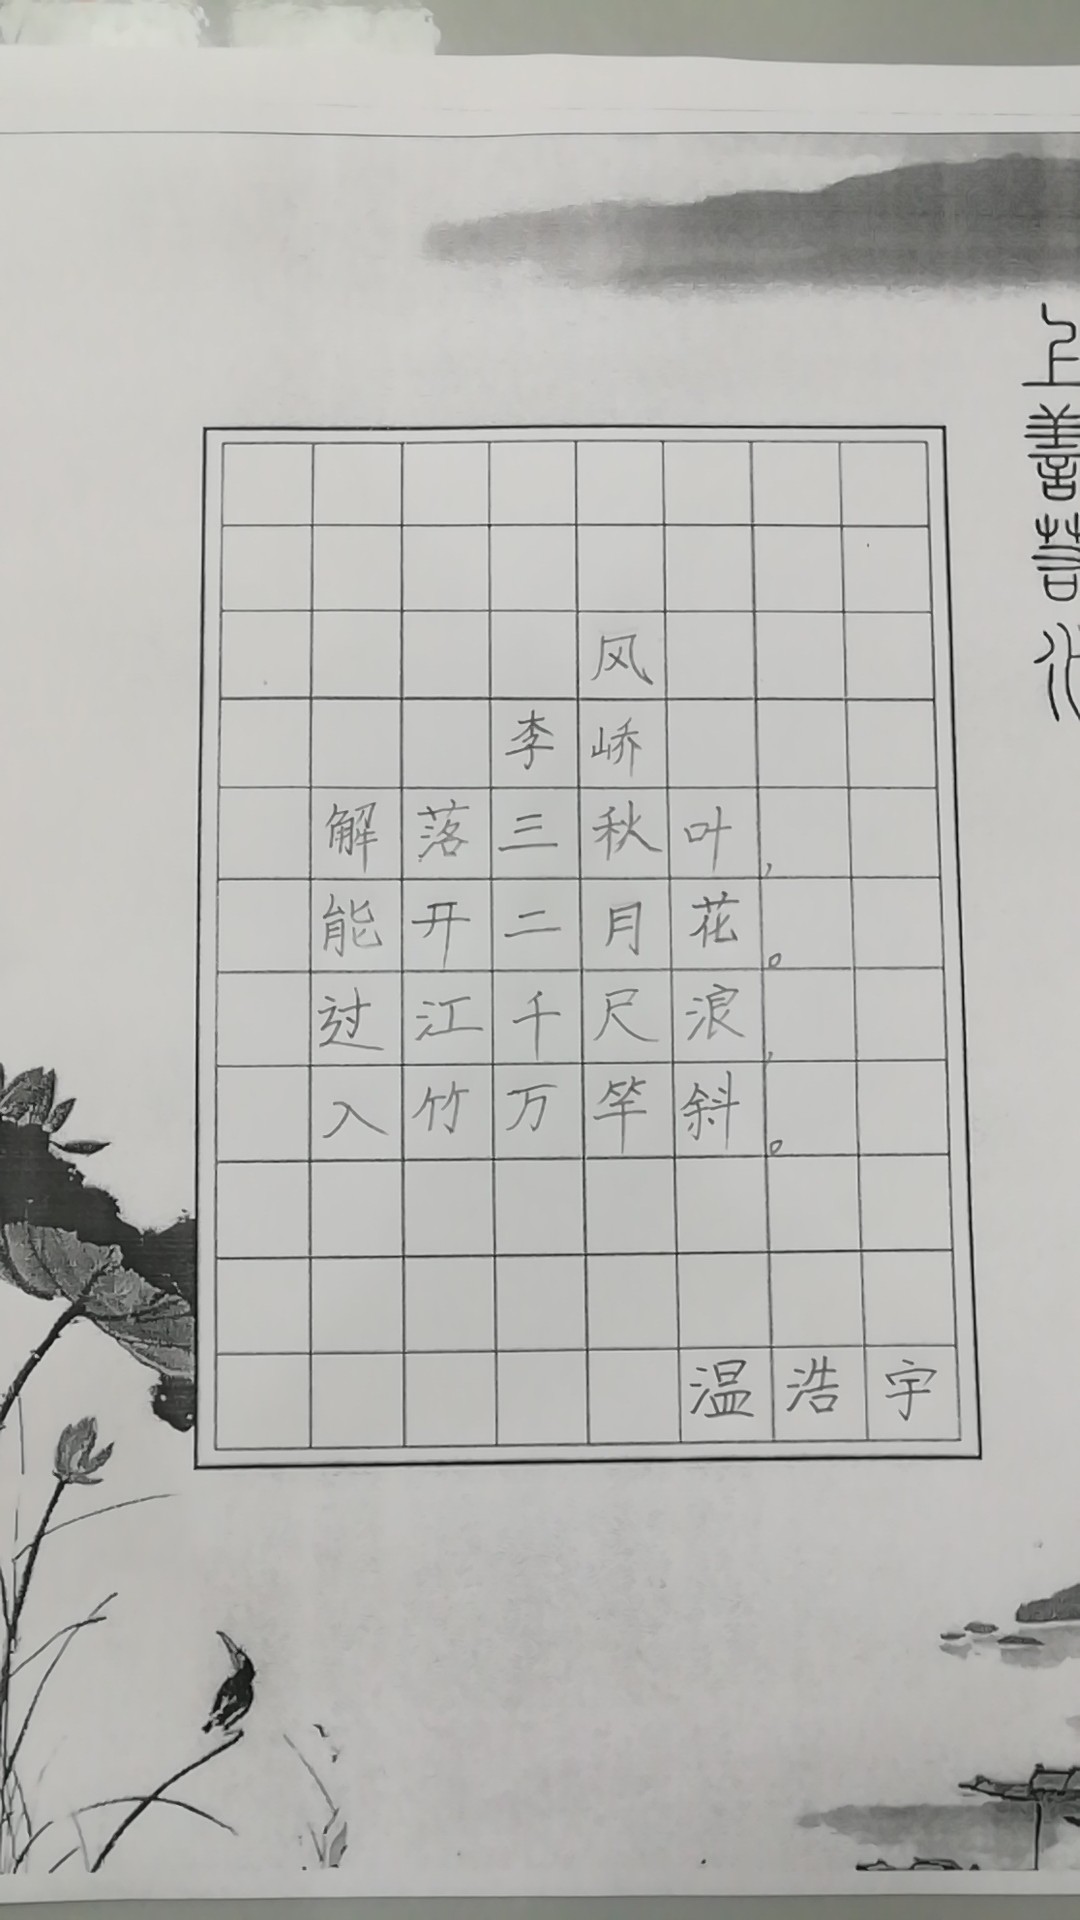 风
李峤
解落三秋叶，
能开二月花。
过江千尺浪，
入竹万竿斜。
温浩宇
上善若水